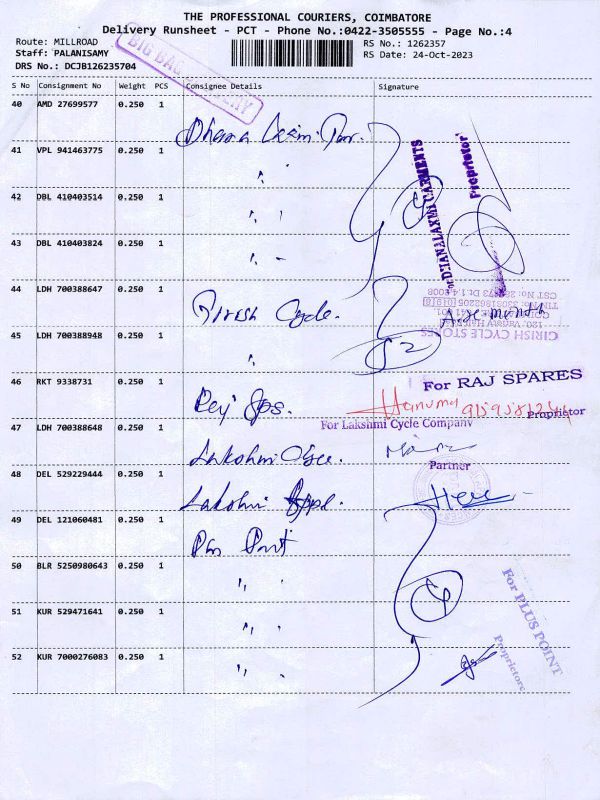 THE PROFESSIONAL COURIERS, COIMBATORE
Delivery Runsheet - PCT - Phone No.:0422-3505555 - Page No.:4
Route: MILLROAD
RS No.: 1262357
Staff: PALANISAMY
RS Date: 24-Oct-2023
DRS No.: DCJB126235704
BIG BAG
S No Consignment No Weight PCS Consignee Details Signature
40 AMD 27699577 0.250 1
41 VPL 941463775 0.250 1
42 DBL 410403514 0.250 1
43 DBL 410403824 0.250 1
DHANALAXMI GARMENTS
Proprietor
44 LDH 700388647 0.250 1
Girish Cycle.
GIRISH CYCLE STORES
45 LDH 700388948 0.250 1
52
46 RKT 9338731 0.250 1
For RAJ SPARES
Hanuma
Proprietor
47 LDH 700388648 0.250 1
For Lakshmi Cycle Company
Lakshmi
Partner
48 DEL 529229444 0.250 1
Lakshmi
49 DEL 121060481 0.250 1
50 BLR 5250980643 0.250 1
For PLUS POINT
Proprietors
51 KUR 529471641 0.250 1
52 KUR 7000276083 0.250 1